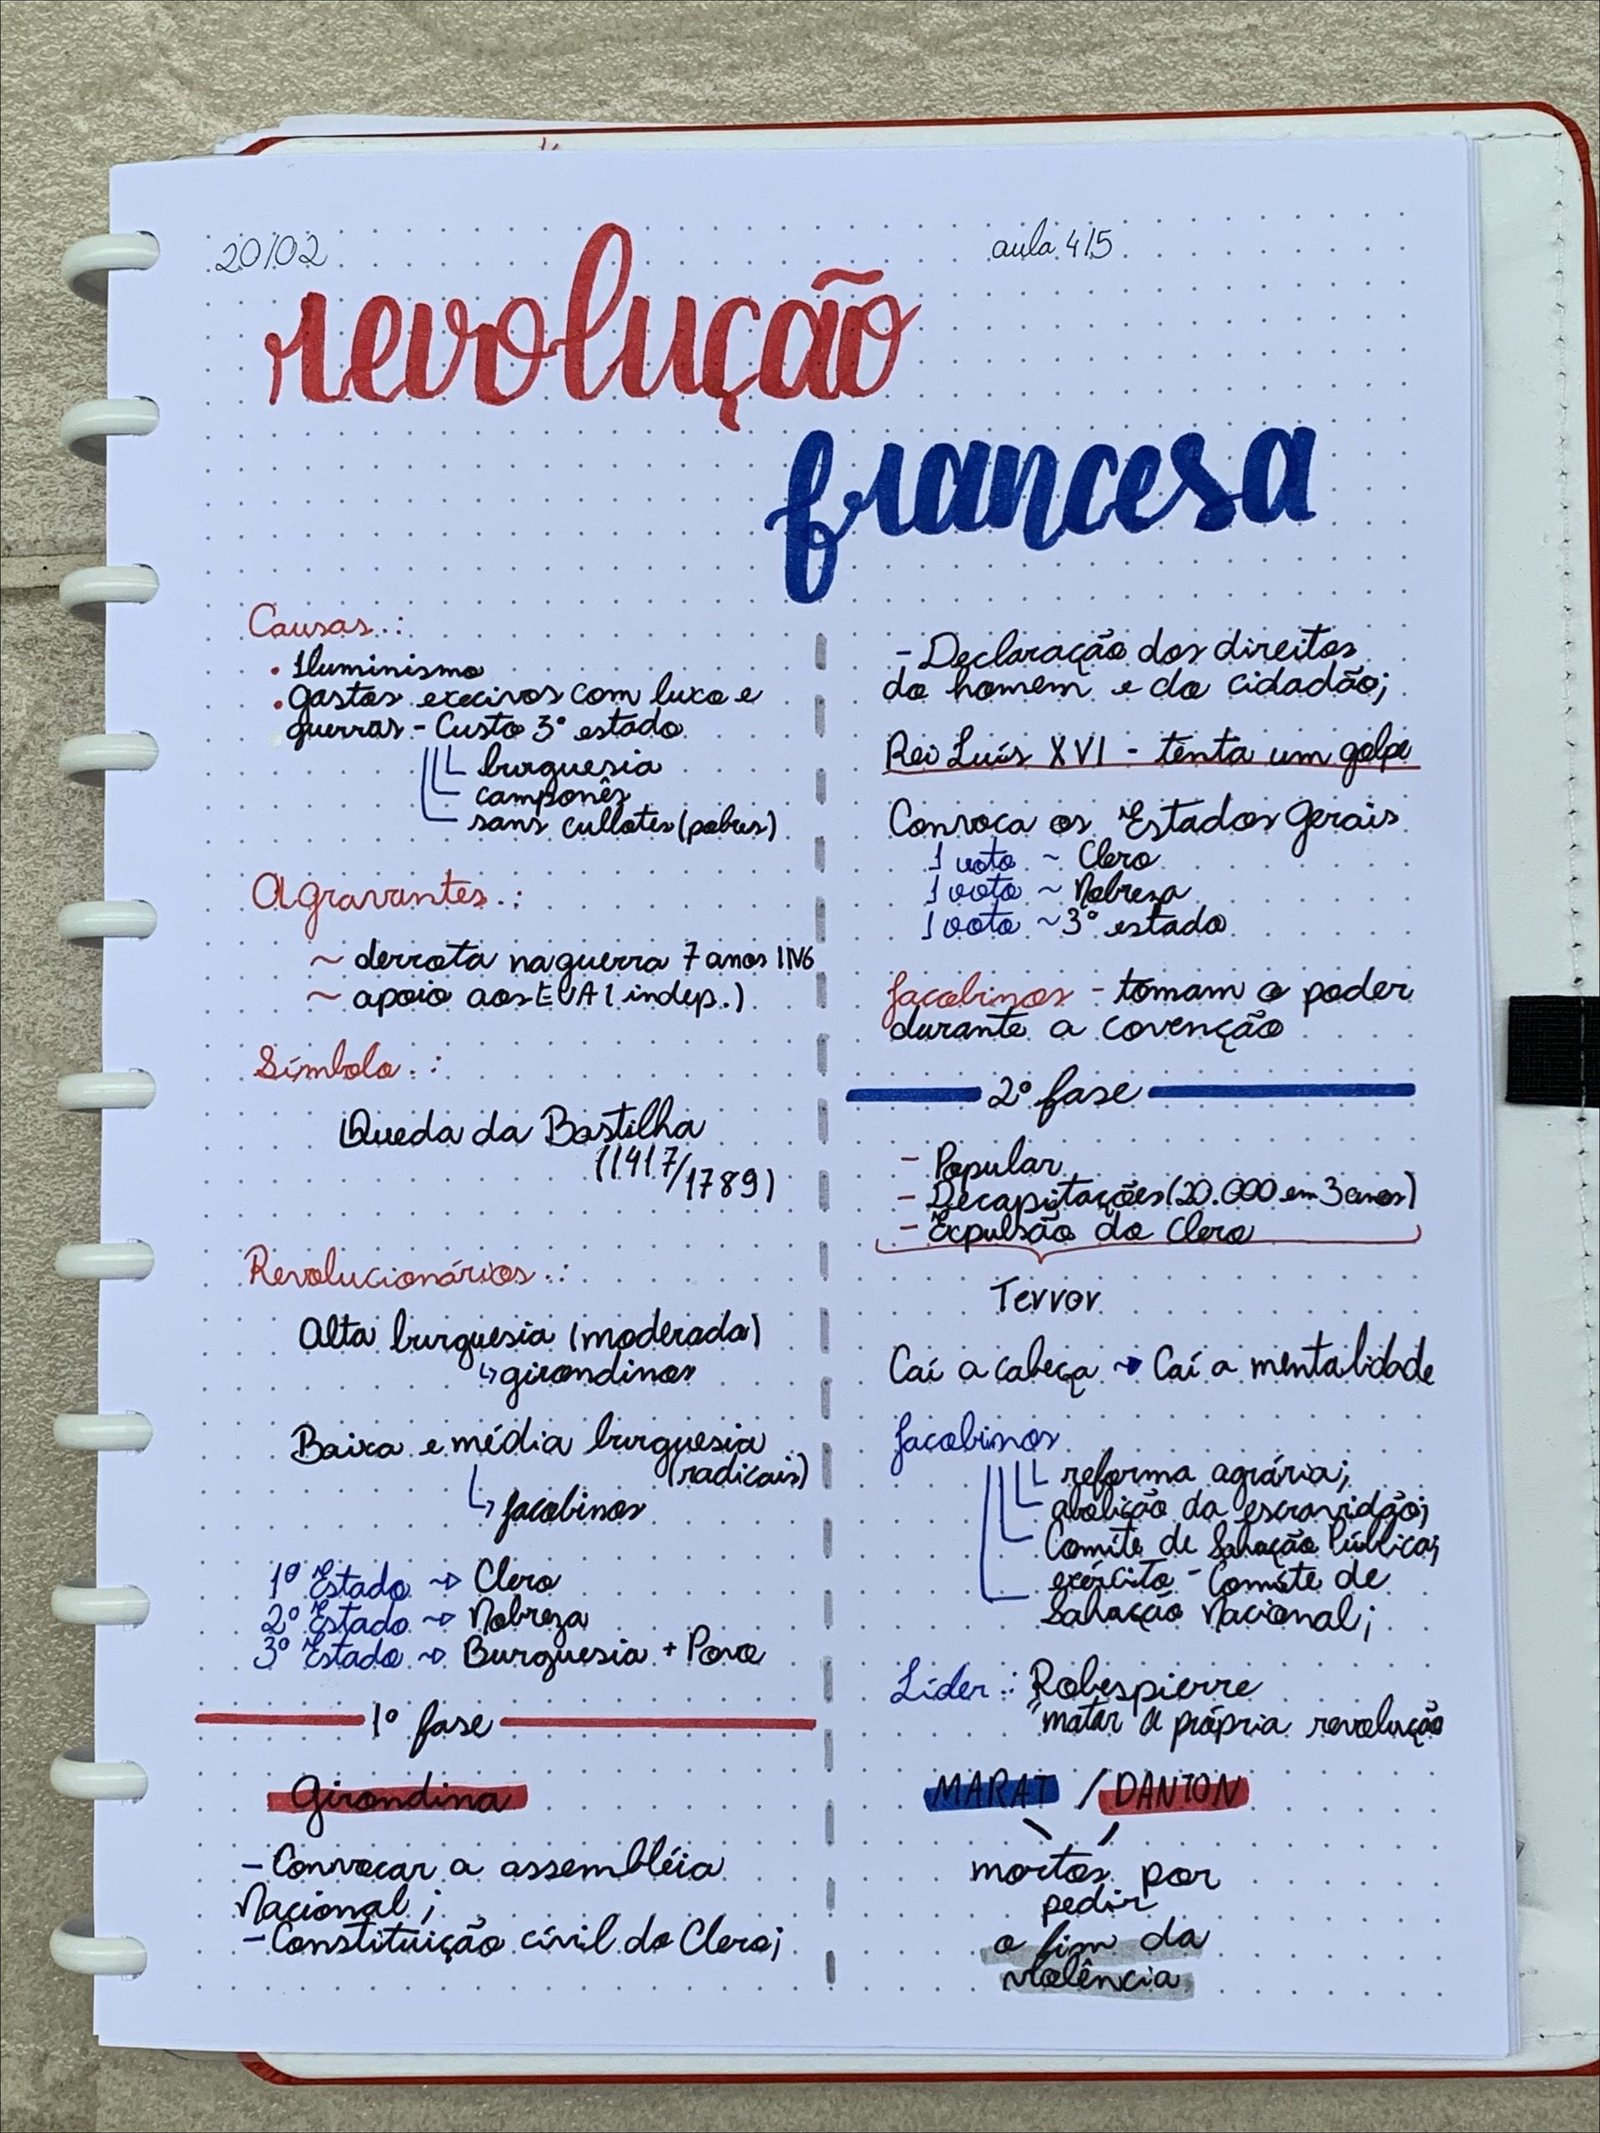 20/02
aula 4/5
revolução
francesa
Causas.:
• Iluminismo
• gastos execivos com luxo e
guerras - Custo 3º estado
burguesia
camponês
sans cullotes (pobres)
Agravantes.:
~ derrota na guerra 7 anos ING
~ apoio aos EUA (indep.)
Símbolo.:
Queda da Bastilha
(14/7/1789)
Revolucionários.:
Alta burguesia (moderada)
↳ girondinos
Baixa e média burguesia
(radicais)
↳ jacobinos
1º Estado ~> Clero
2º Estado ~> Nobreza
3º Estado ~> Burguesia + Povo
1º fase
Girondina
- Convocar a assembléia
Nacional;
- Constituição cívil do Clero;
- Declaração dos direitos
do homem e do cidadão;
Rei Luís XVI - tenta um golpe
Convoca os Estados Gerais
1 voto ~ Clero
1 voto ~ Nobreza
1 voto ~ 3º estado
Jacobinos - tomam o poder
durante a covenção
2º fase
- Popular
- Decapitações (20.000 em 3 anos)
- Expulsão do Clero
Terror
Caí a cabeça ~> Caí a mentalidade
Jacobinos
reforma agrária;
abolição da escravidão;
Comitê de Salvação Pública;
exército - Comitê de
Salvação Nacional;
Líder.: Robespierre
"matar a própria revolução
MARAT / DANTON
mortos por
pedir
o fim da
violência